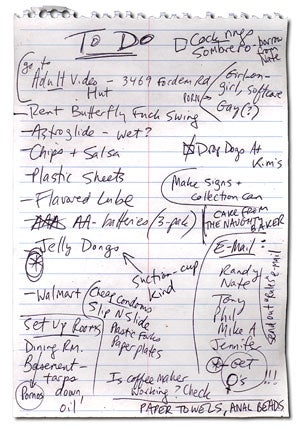 To Do
□ Cock rings
Sombrero - borrow from Nate
go to
Adult Video - 3469 Fordem Rd
Hut
PORN
Girl-on-
girl, softcore
Gay(?)
- Rent Butterfly Fuck Swing
- Astroglide - wet?
- Chips + Salsa
Drop Dogs At
Kim's
- Plastic Sheets
- Flavored Lube
Make signs +
collection can
- AA- batteries (3-pack)
CAKE FROM
THE NAUGHTY BAKER
- Jelly Dongs
suction-cup
kind
E-Mail:
Randy
Nate
Tony
Phil
Mike A
Jennifer
GET
♀'s !!!
send out "Rules" e-mail
- Walmart
Cheap Condoms
Slip N Slide
Plastic Forks
Paper plates
Set Up Rooms
Dining Rm.
Basement -
tarps
down,
oil
Pornos
Is coffee maker
working? Check
PAPER TOWELS, ANAL BEADS